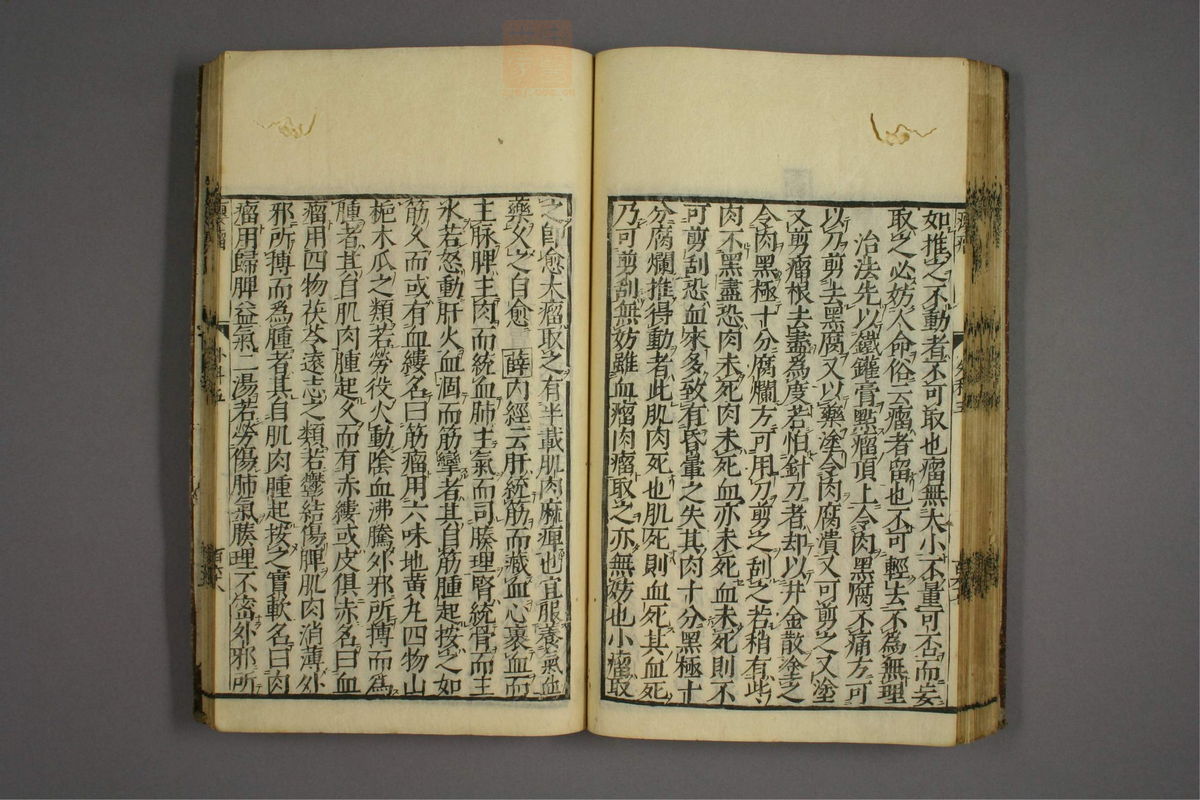 如推之不動者不可取也瘤無大小不量可否而妄
取之必妨人命俗云瘤者留也不可輕去不為無理
治法先以鐵鑵膏點瘤頂上令肉黑腐不痛方可
以刀剪去黑腐又以藥塗令肉腐潰又可剪之又塗
又剪瘤根去盡為度若怕針刀者却以井金散塗之
令肉黑極十分腐爛方可用刀剪之刮之若稍有些
肉不黑盡恐肉未死肉未死血亦未死血未死則不
可剪刮恐血來多致有昏暈之失其肉十分黑極十
分腐爛推得動者此肌肉死也肌死則血死其血死
乃可剪刮無妨雖血瘤肉瘤取之亦無妨也小瘤取
之即愈大瘤取之有半載肌肉麻痺也宜服養氣血
藥久之自愈 薛 內經云肝統筋而藏血心裹血而
主脉脾主肉而統血肺主氣而司腠理腎統骨而主
水若怒動肝火血涸而筋攣者其自筋腫起按之如
筋久而或有血縷名曰筋瘤用六味地黄丸四物山
梔木瓜之類若勞役火動陰血沸騰外邪所搏而為
腫者其自肌肉腫起久而有赤縷或皮俱赤名曰血
瘤用四物茯苓遠志之類若鬱結傷脾肌肉消薄外
邪所搏而為腫者其自肌肉腫起按之實軟名曰肉
瘤用歸脾益氣二湯若勞傷肺氣腠理不密外邪所